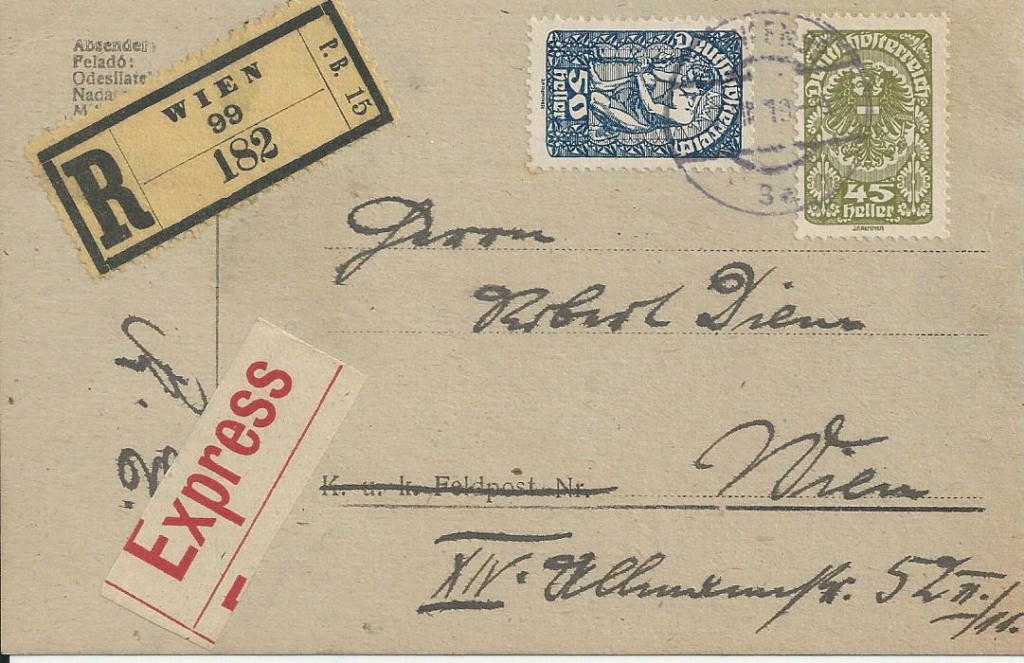 Absender
Feladó:
Odesílate
Nada
WIEN
99
182
P. B. 15
R
Deutschösterreich
50
heller
Deutschösterreich
45
heller
Herrn
Robert
Wien
K. u. k. Feldpost Nr.
XIV. 52 II./
Express